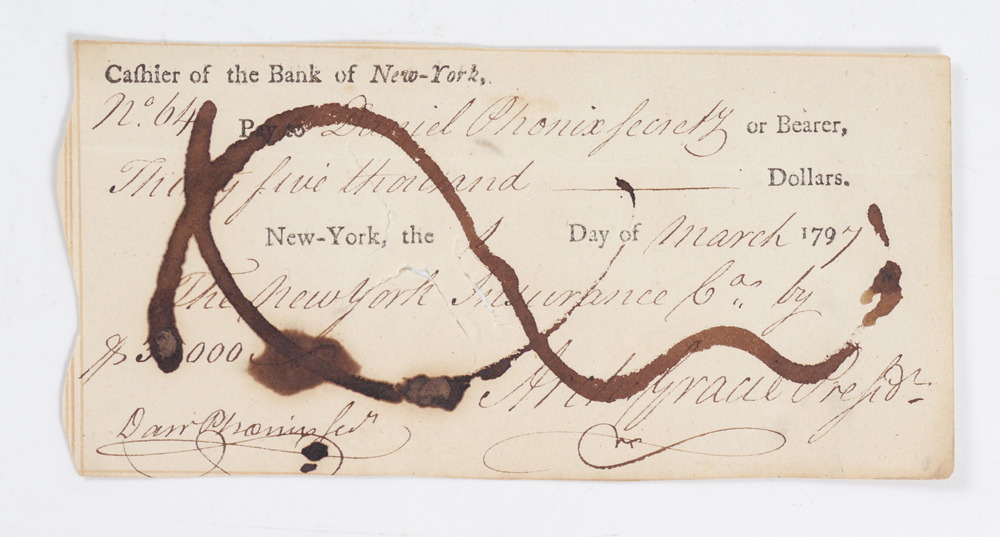 Caſhier of the Bank of New-York,
No. 64 Pay to Daniel Phonix secrety or Bearer,
Thirty five thousand Dollars.
New-York, the Day of March 1797
The New York Insurance Coy. by
$ 35000
Archd Gracie Presidt
Danl Phœnix Secy